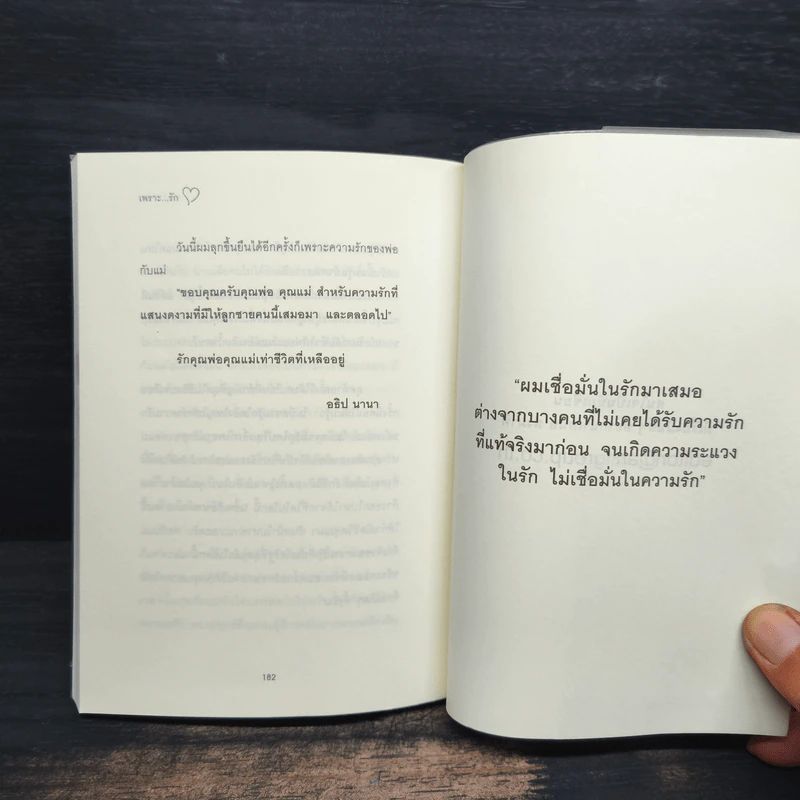 เพราะ...รัก
วันนี้ผมลุกขึ้นยืนได้อีกครั้งก็เพราะความรักของพ่อ
กับแม่
"ขอบคุณครับคุณพ่อ คุณแม่ สำหรับความรักที่
แสนงดงามที่มีให้ลูกชายคนนี้เสมอมา และตลอดไป"
รักคุณพ่อคุณแม่เท่าชีวิตที่เหลืออยู่
อธิป นานา
182
"ผมเชื่อมั่นในรักมาเสมอ
ต่างจากบางคนที่ไม่เคยได้รับความรัก
ที่แท้จริงมาก่อน จนเกิดความระแวง
ในรัก ไม่เชื่อมั่นในความรัก"